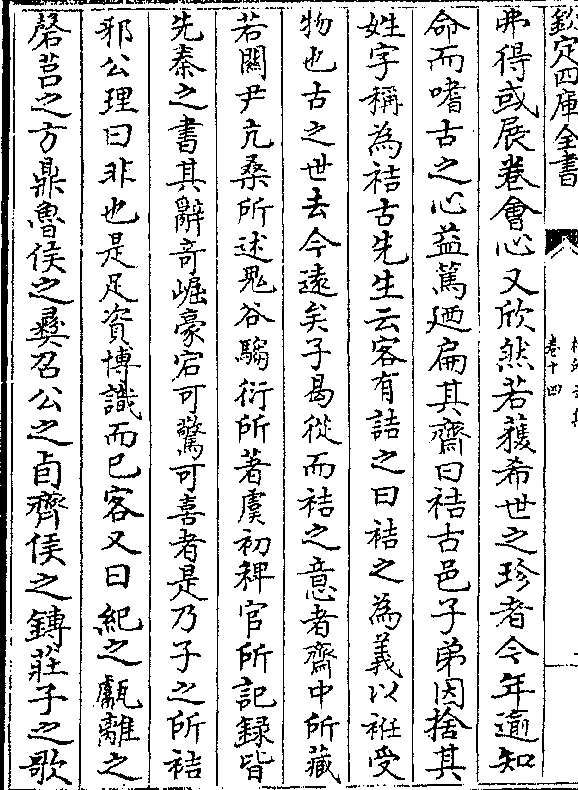 欽定四庫全書
卷十四
弗得或展卷會心又欣然若獲希世之珍者今年逾知
命而嗜古之心益篤廼扁其齋曰袺古邑子弟因捨其
姓字稱為袺古先生云客有詰之曰袺之為義以袵受
物也古之世去今遠矣子曷從而袺之意者齋中所藏
若關尹亢桑所述鬼谷騶衍所著虞初稗官所記録皆
先秦之書其辭竒崛豪宕可驚可喜者是乃子之所袺
邪公理曰非也是足資博識而已客又曰紀之甗離之
磬莒之方鼎魯侯之彝召公之卣齊侯之鎛莊子之歌